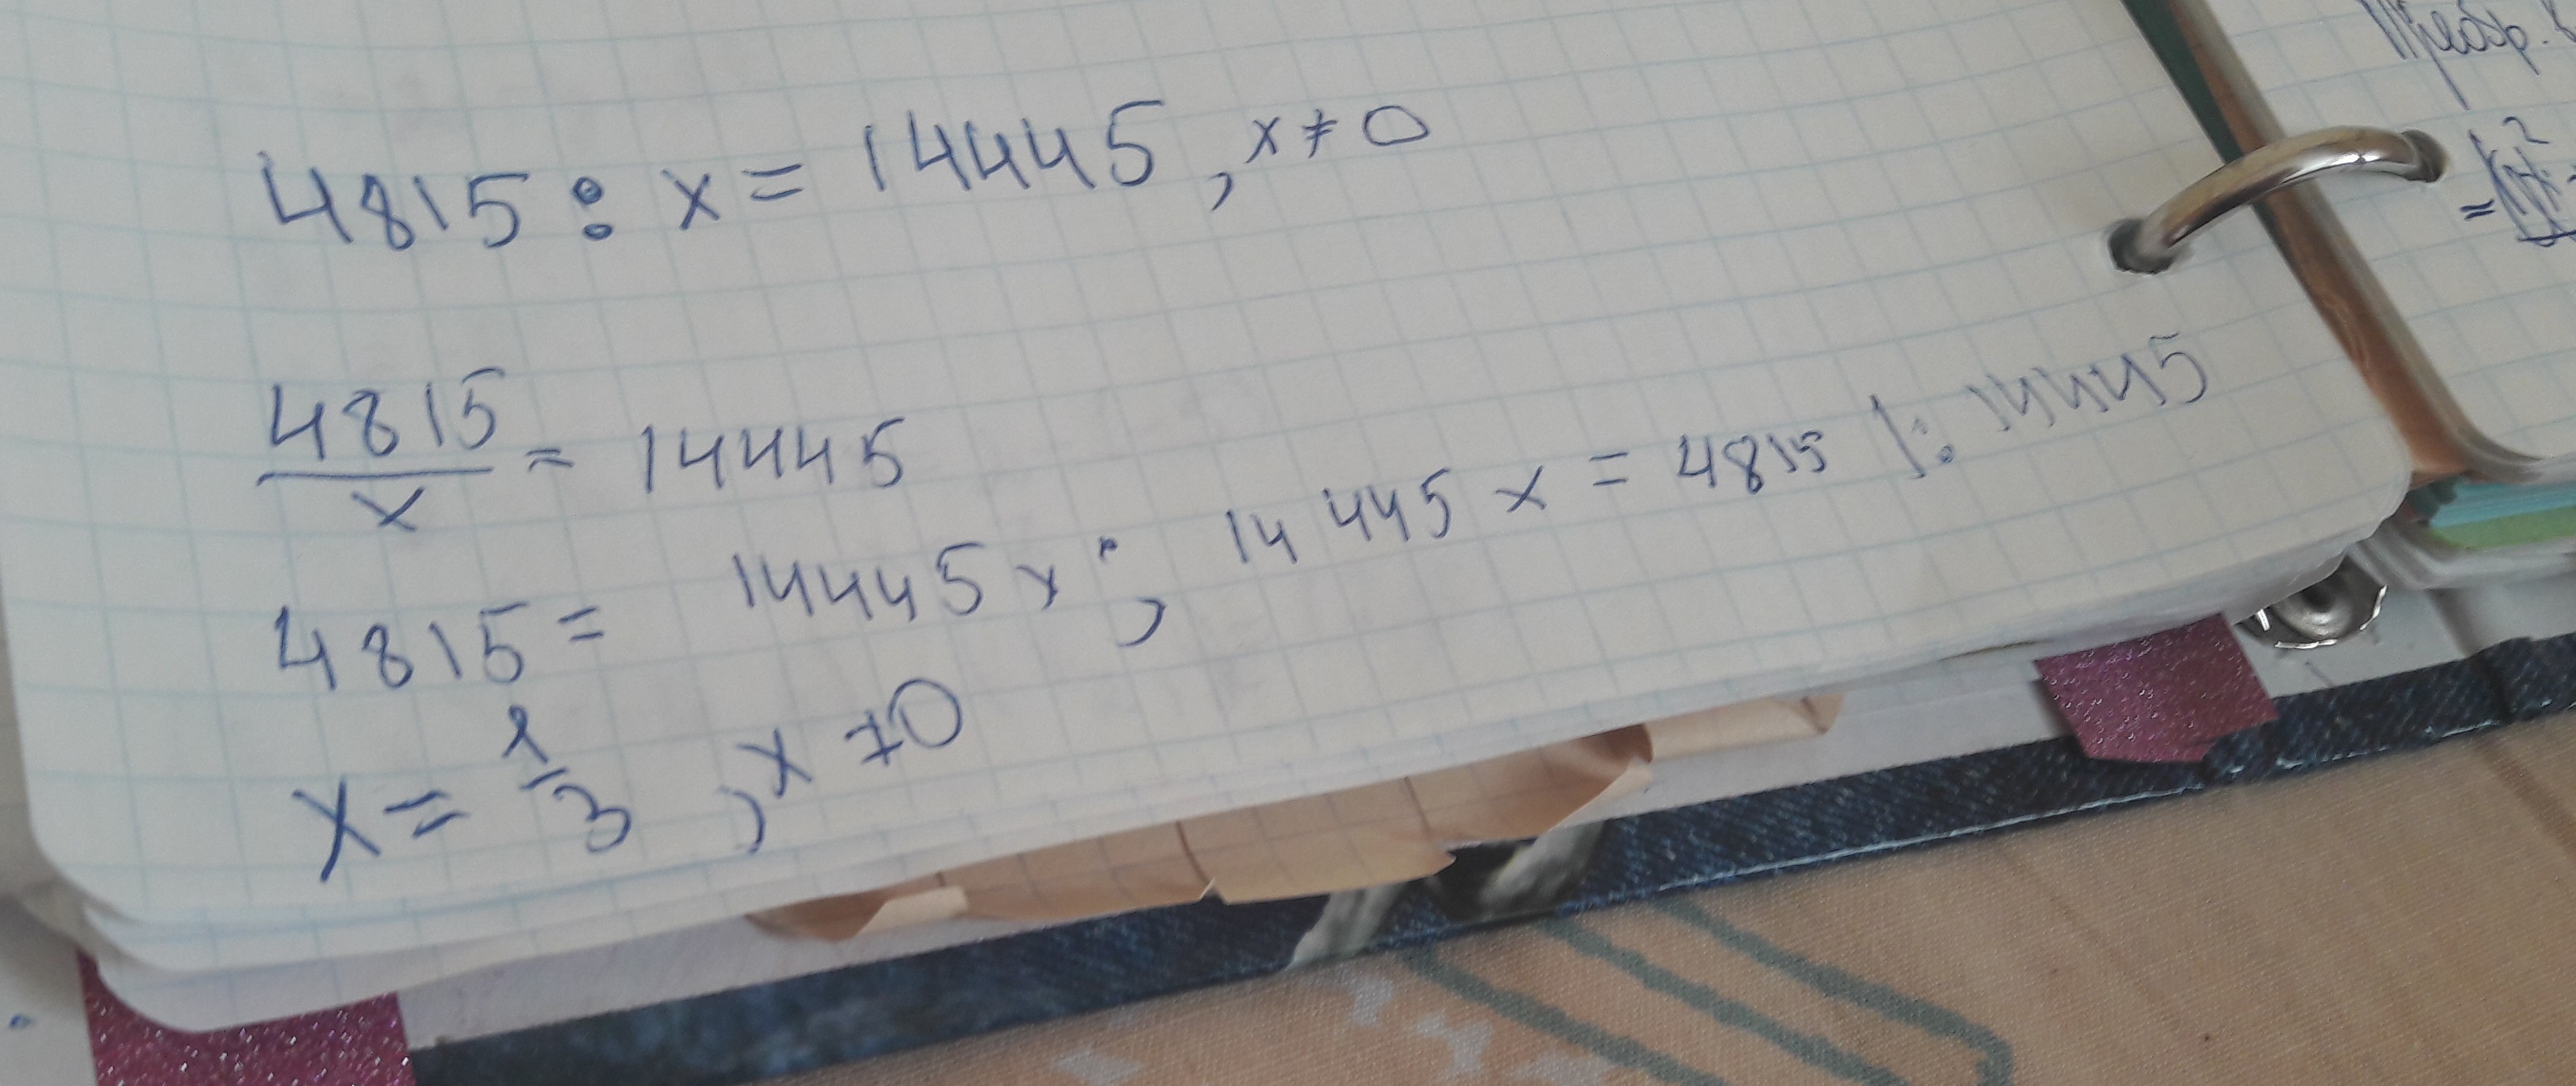 4815 : x = 14445, x ≠ 0
4815/x = 14445
4815 = 14445x; 14445x = 4815 |: 14445
x = 1/3, x ≠ 0
Преобр.